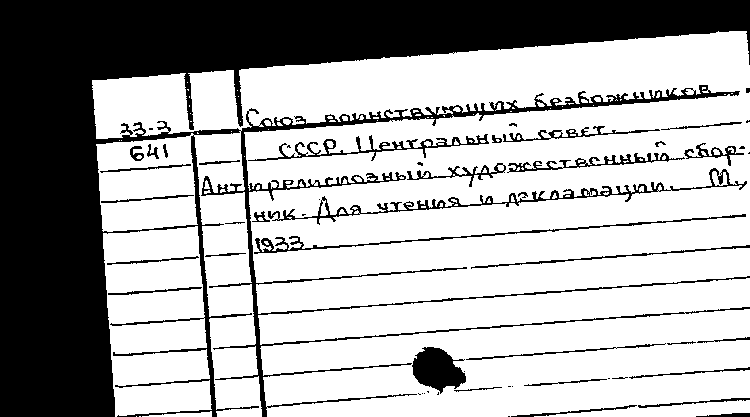 33-3 Союз воинствующих безбожников
641 СССР. Центральный совет.
Антирелигиозный художественный сбор-
ник. Для чтения и декламации. М.,
1933.